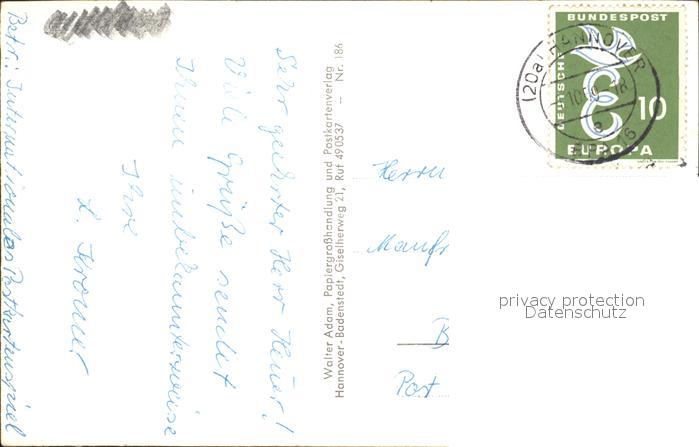 Betr.: Internationales Postkartenspiel
Sehr geehrter Herr Heuer!
Viele Grüße sendet
Ihnen unbekannterweise
Ihre
Walter Adam, Papiergroßhandlung und Postkartenverlag
Hannover-Badenstedt, Giselherweg 21, Ruf 490537 – Nr. 186
DEUTSCHE
BUNDESPOST
10
EUROPA
(20a) HANNOVER
Herrn
Manfr
B
Post
privacy protection
Datenschutz